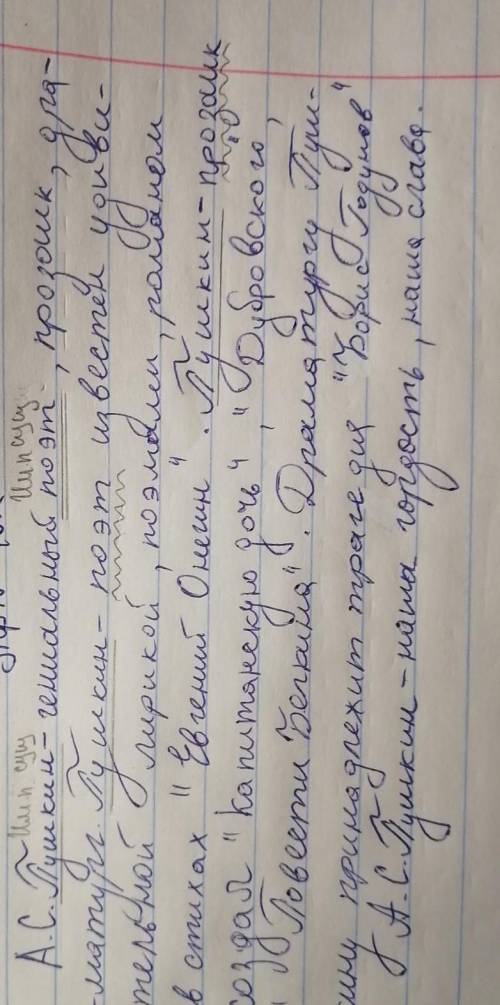 Им.п сущ Им.п сущ
А.С. Пушкин - гениальный поэт, прозаик, дра-
-матург. Пушкин - поэт известен удиви-
тельной лирикой, поэмами, романом
в стихах "Евгений Онегин". Пушкин - прозаик
создал "Капитанскую дочь", "Дубровского",
"Повести Белкина". Драматургу Пуш-
кину принадлежит трагедия "Борис Годунов"
А.С. Пушкин - наша гордость, наша слава.